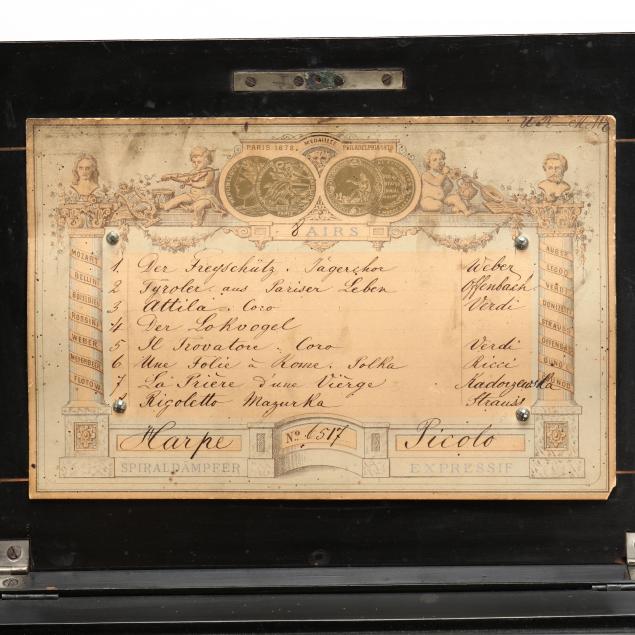 PARIS 1878. MEDAILLEN PHILADELPHIA 1876
8 AIRS
1. Der Freyschütz. Jägerchor Weber
2 Tyroler aus Pariser Leben Offenbach
3 Attila. Coro Verdi
4 Der Lokvogel
5 Il Trovatore. Coro Verdi
6 Une Folie à Rome. Polka Ricci
7 La Prière d'une Vièrge. Badarzewska
8 Rigoletto Mazurka Strauss
MOZART
BELLINI
BOIELDIEU
ROSSINI
WEBER
MEYERBEER
FLOTOW
AUBER
LECOQ
VERDI
DONIZETTI
STRAUSS
OFFENBACH
GOUNOD
Harpe No. 6517 Picolo
SPIRALDÄMPFER EXPRESSIF